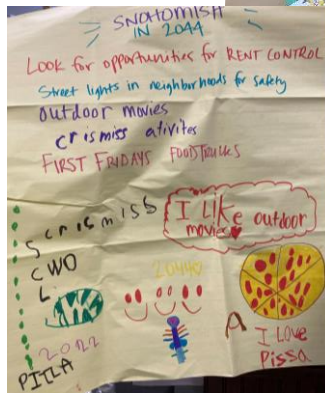 SNOHOMISH
IN 2044
LOOK for opportunities for RENT CONTROL
Street lights in neighborhoods for safety
outdoor movies
crismiss ativites
FIRST FRIDAYS FOODTRUCKS
S crismiss
CWO
L
I LIKE outdoor
movies
2044
2022
PITLA
A
I Love
Pissa